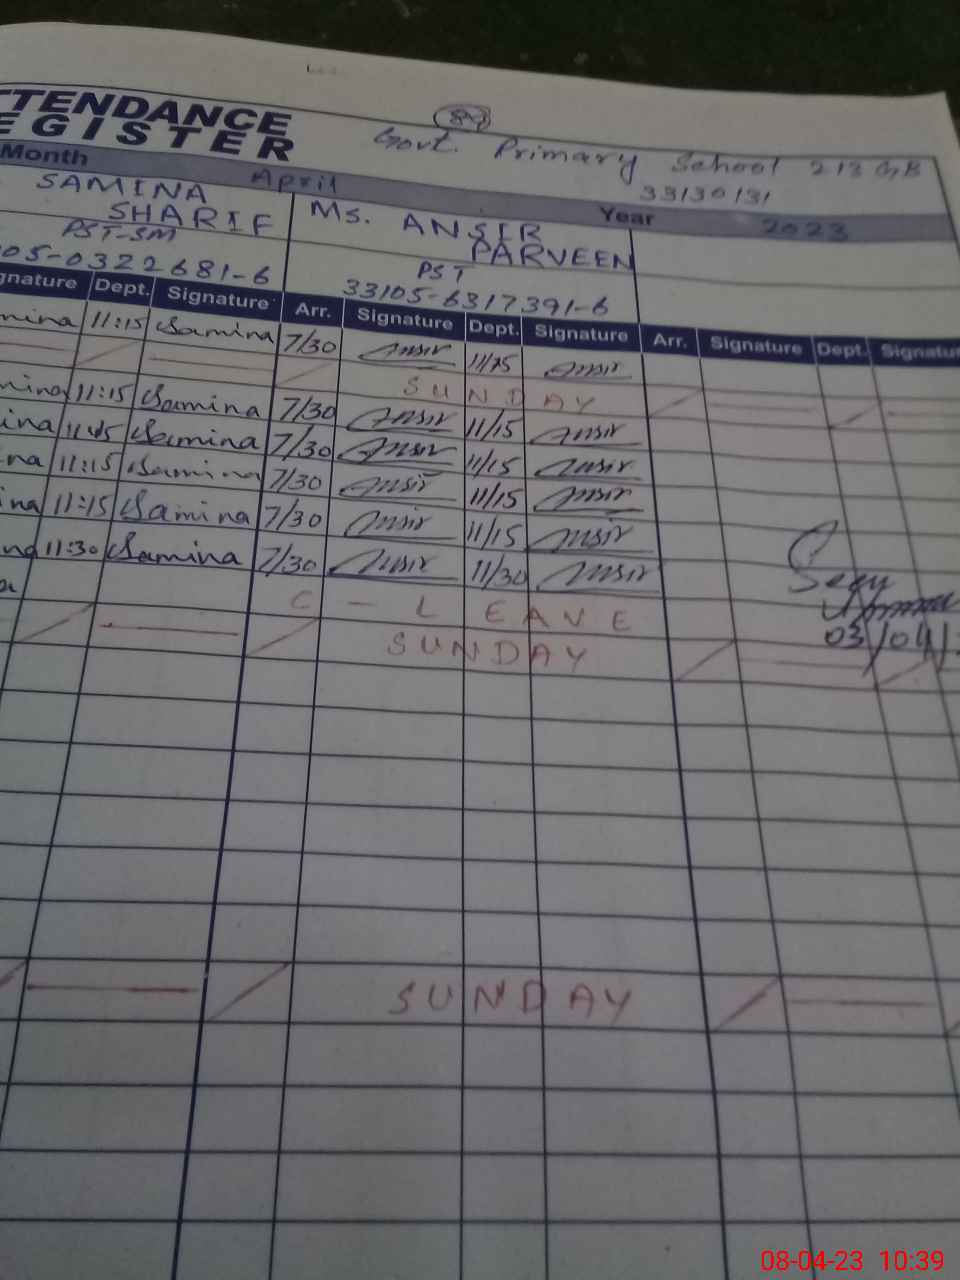 TTENDANCE
EGISTER
89
Govt. Primary School 213 GB
33130131
Month April Year 2023
SAMINA SHARIF
PST-SM
05-0322681-6
Ms. ANSIR PARVEEN
PST
33105-6317391-6
gnature Dept. Signature Arr. Signature Dept. Signature Arr. Signature Dept. Signatur
mina 11:15 Samina 7/30 Ansir 11/15 Ansir
SUNDAY
mina 11:15 Samina 7/30 Ansir 11/15 Ansir
ina 11:45 Samina 7/30 Ansir 11/15 Ansir
na 11:15 Samina 7/30 Ansir 11/15 Ansir
ina 11:15 Samina 7/30 Ansir 11/15 Ansir
na 11:30 Samina 7/30 Ansir 11/30 Ansir
C - LEAVE
03/04/
SUNDAY
SUNDAY
08-04-23 10:39